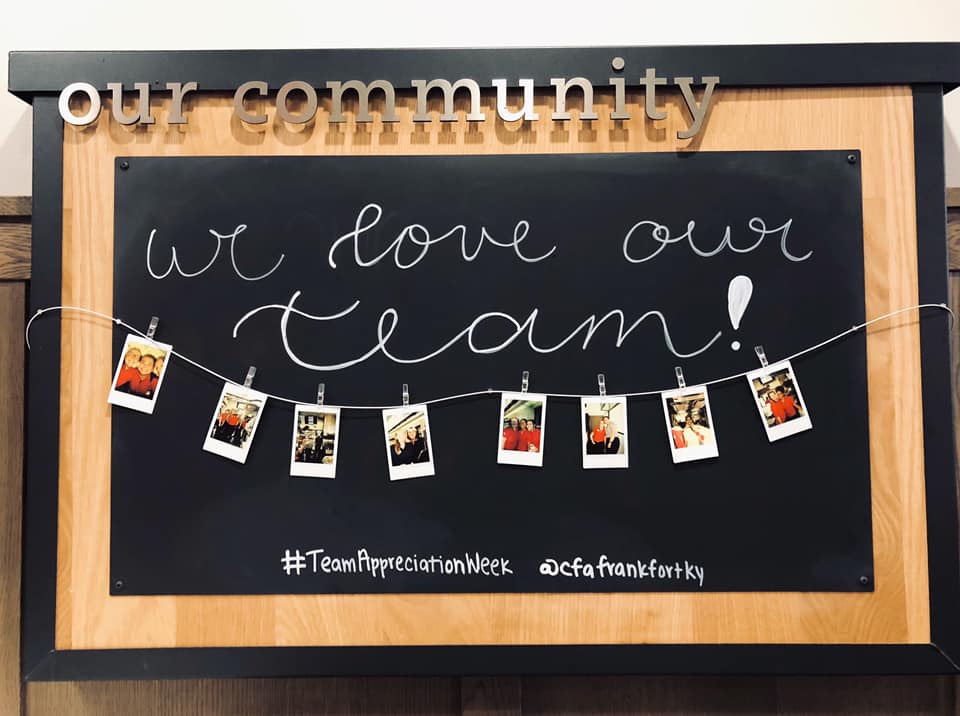 our community
we love our
team!
#TeamAppreciationWeek @cfafrankfortky